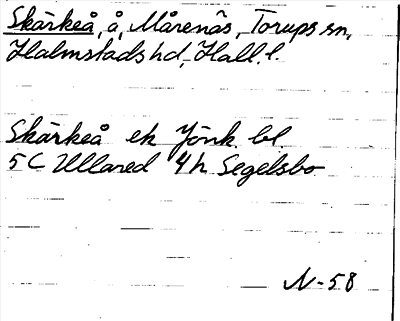 Skärkeå, å, Mårenäs, Torups sn,
Halmstads hd, Hall. l.
Skärkeå ek Jönk. bl.
5 C Ullared 4 h Segelsbo
N-58